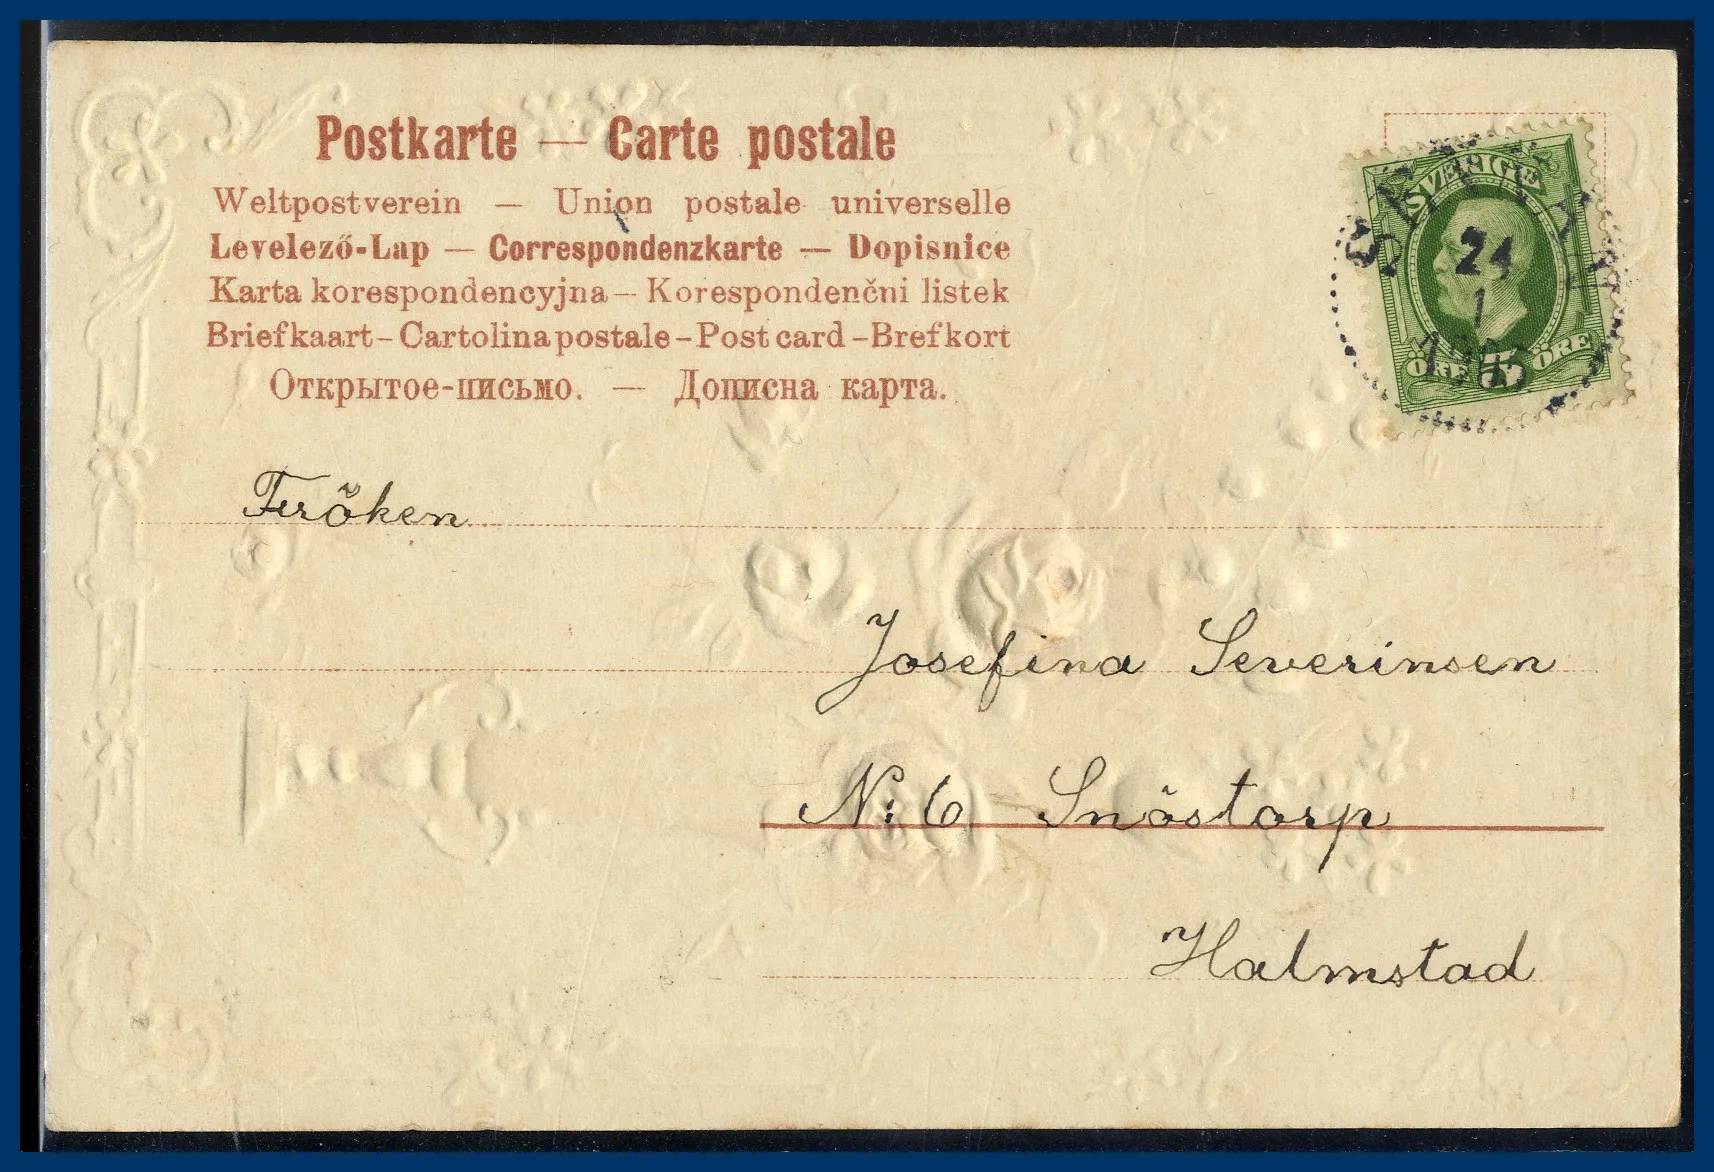 Postkarte — Carte postale
Weltpostverein — Union postale universelle
Levelező-Lap — Correspondenzkarte — Dopisnice
Karta korespondencyjna — Korespondenčni listek
Briefkaart – Cartolina postale – Post card – Brefkort
Открытое-письмо. — Дописна карта.
SVERIGE
24
1
ÖRE 5 ÖRE
Fröken
Josefina Severinsen
N: 6 Snöstorp
Halmstad